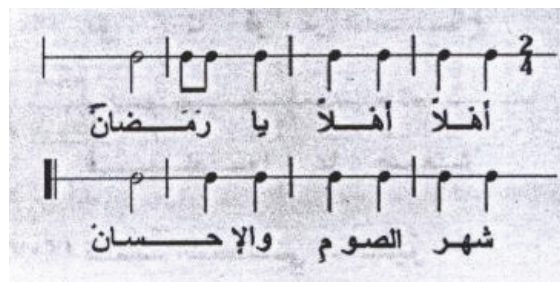 2
4
أهـلاً أهـلاً يا رَمَـضانْ
شهر الصومِ والإحـسانْ